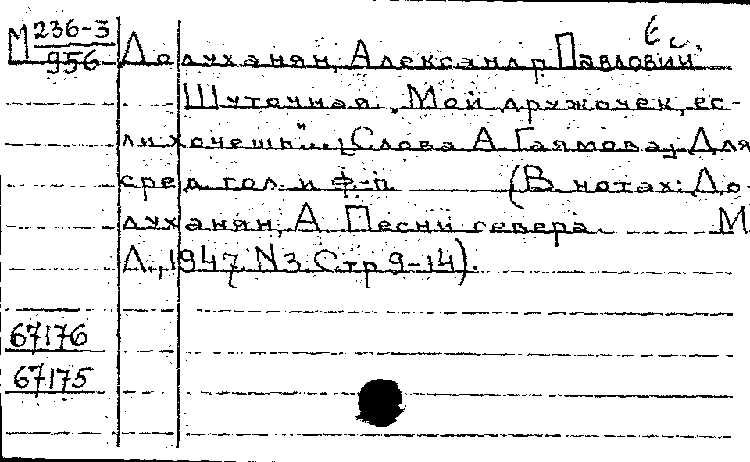 М 236-3
956
6 с.
Долуханян, Александр Павлович.
Шуточная. „Мой дружочек, ес-
ли хочешь"... [Слова А. Гаямова]. Для
сред. гол. и ф-п. (В нотах: До-
луханян, А. Песни севера. М.
Л., 1947. N3. Стр. 9-14).
67176
67175